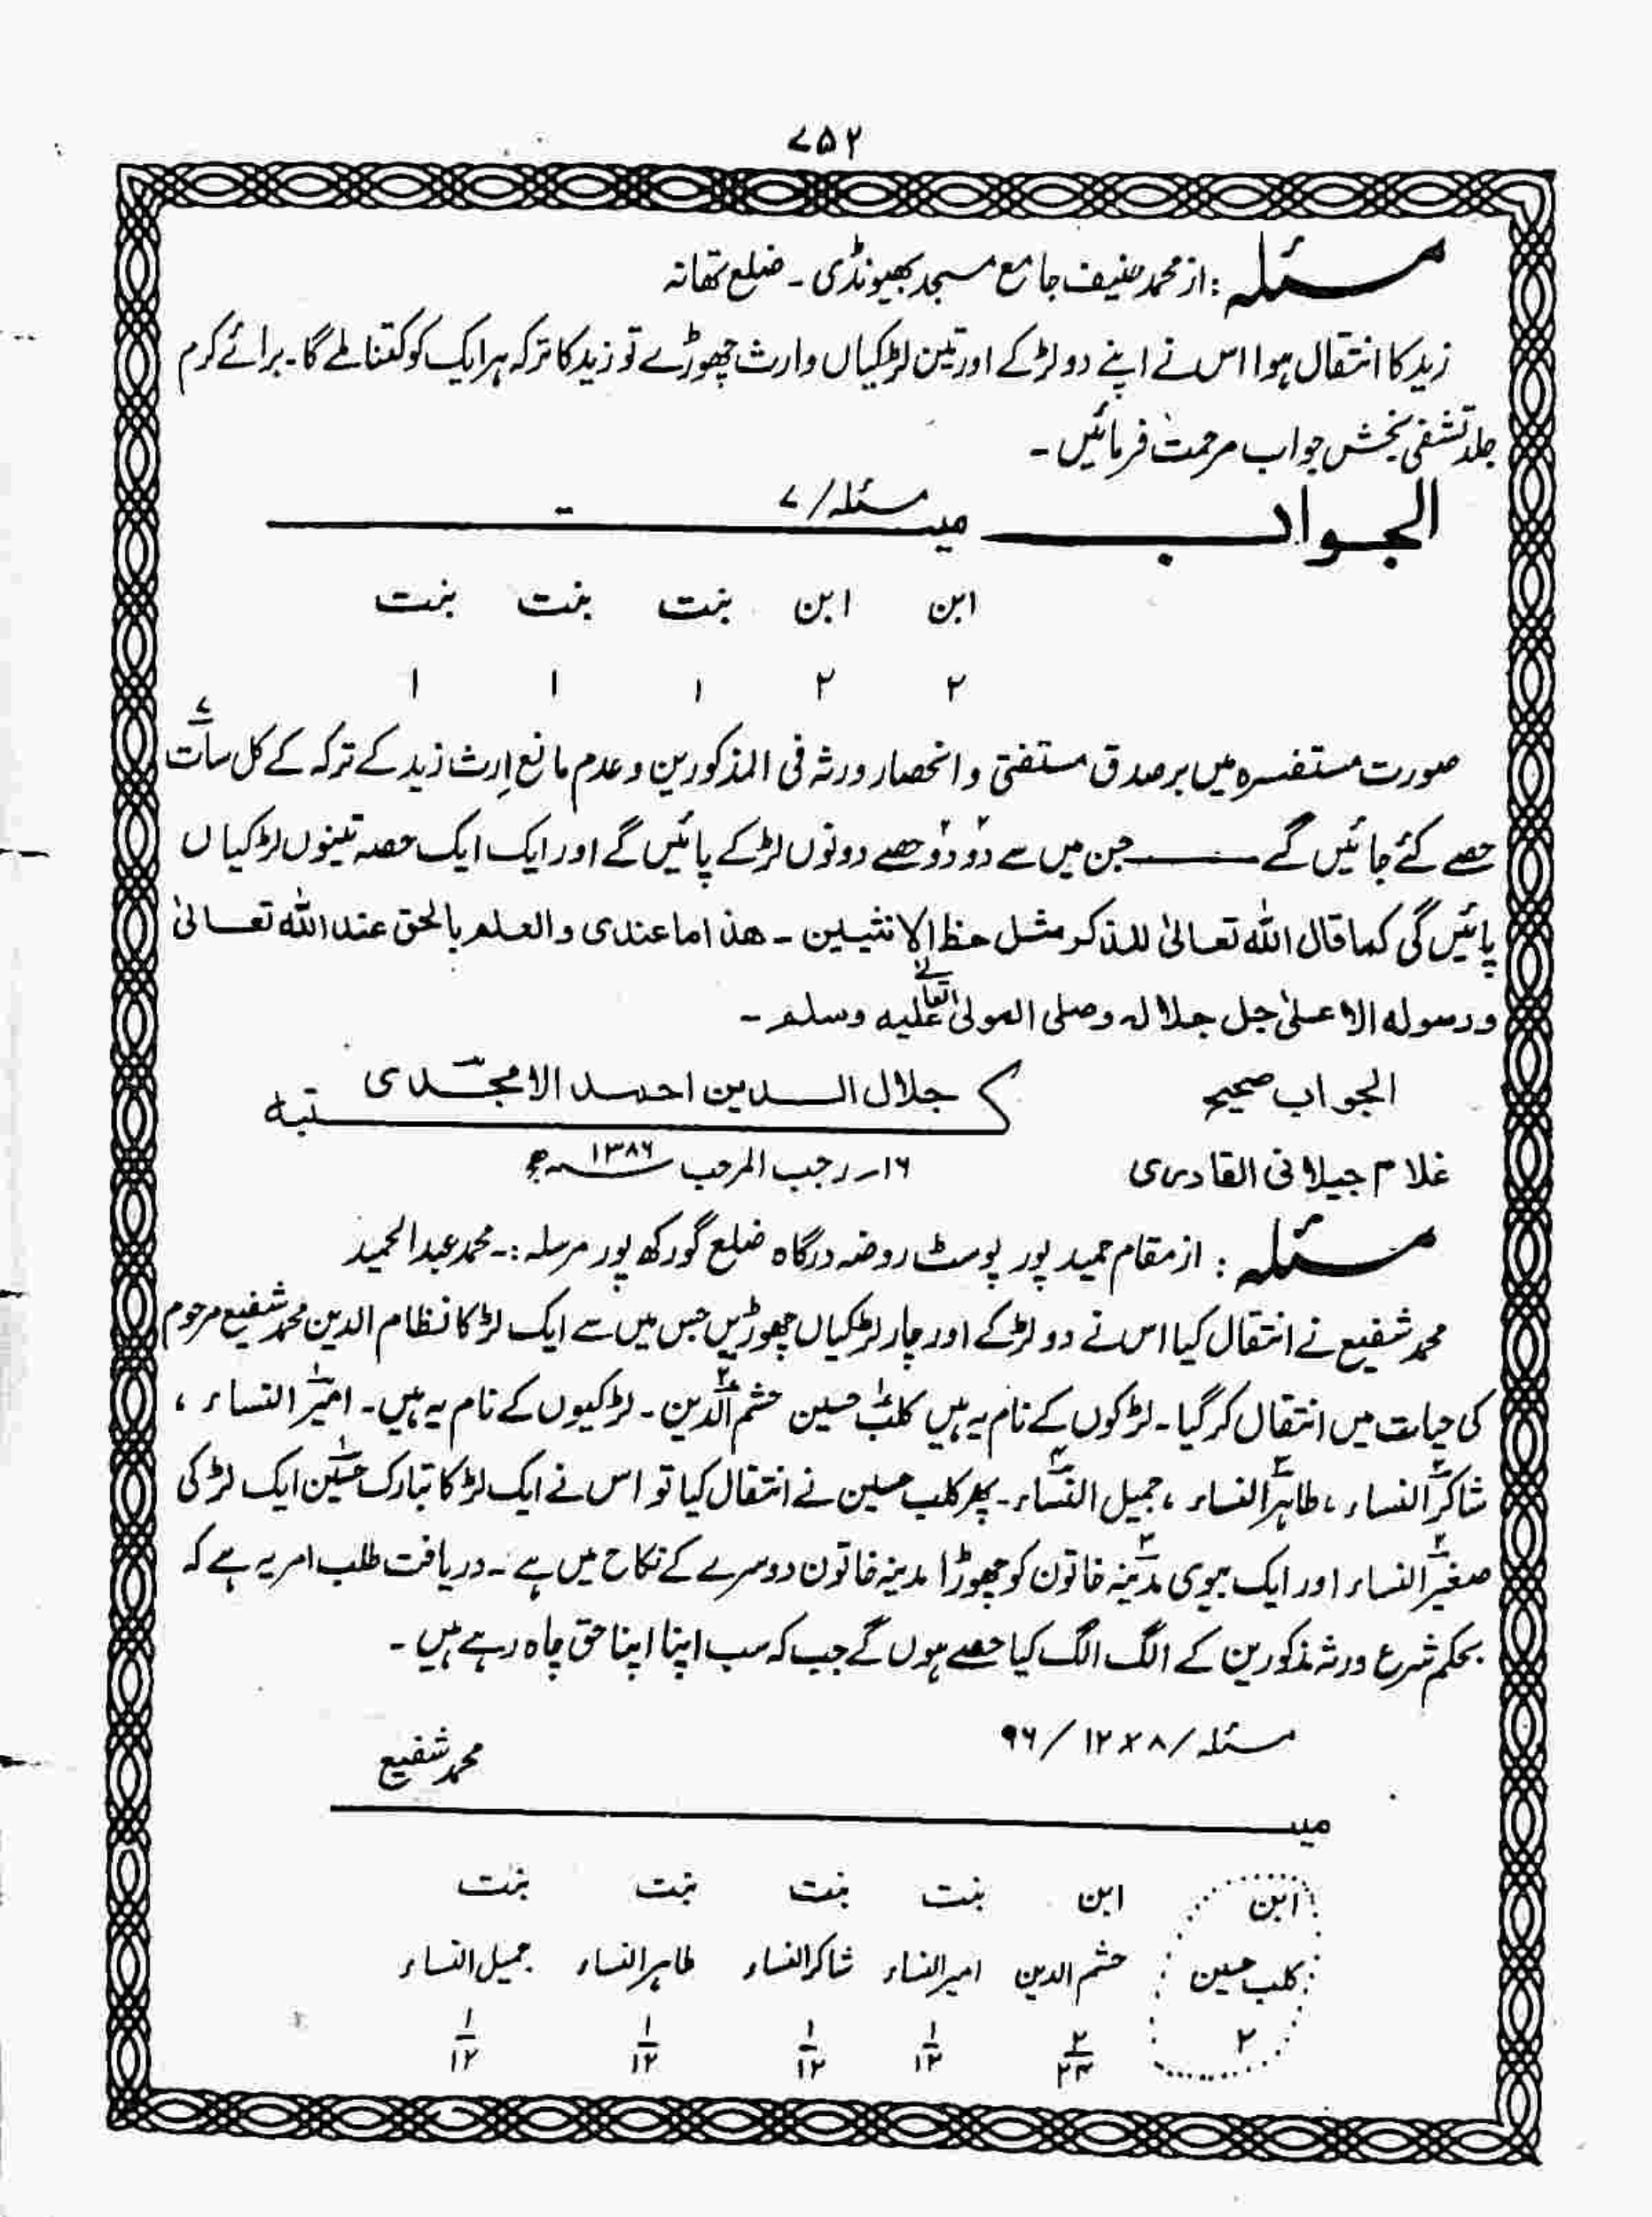 ۷۵۲
مسئلہ : از محمد حنیف جامع مسجد بھیونڈی ۔ ضلع تھانہ
زید کا انتقال ہوا اس نے اپنے دو لڑکے اور تین لڑکیاں وارث چھوڑے تو زید کا ترکہ ہر ایک کو کتنا ملے گا ۔ برائے کرم
جلد تشفی بخش جواب مرحمت فرمائیں ۔
الجواب مسئلہ / ۷ میت
ابن ابن بنت بنت بنت
۲ ۲ ۱ ۱ ۱
صورت مستفسرہ میں بر صدق مستفتی و انحصار ورثہ فی المذکورین و عدم مانع اِرث زید کے ترکہ کے کل سات ۷
حصے کئے جائیں گے ——— جن میں سے دو۲ دو۲ حصے دونوں لڑکے پائیں گے اور ایک ایک حصہ تینوں لڑکیاں
پائیں گی کما قال اللہ تعالیٰ للذکر مثل حظ الانثیین ۔ ھذا ما عندی والعلم بالحق عند اللہ تعالیٰ
ورسولہ الاعلیٰ جل جلالہ وصلی المولیٰ تعالیٰ علیہ وسلم ۔
الجواب صحیح کتبہ جلال الدین احمد الامجدی
غلام جیلانی القادری ۱۶؍ رجب المرجب ۱۳۸۶ھ
مسئلہ : از مقام حمید پور پوسٹ روضہ درگاہ ضلع گورکھ پور مرسلہ :۔ محمد عبد الحمید
محمد شفیع نے انتقال کیا اس نے دو لڑکے اور چار لڑکیاں چھوڑیں جس میں سے ایک لڑکا نظام الدین محمد شفیع مرحوم
کی حیات میں انتقال کر گیا ۔ لڑکوں کے نام یہ ہیں کلب۱ حسین حشم۲ الدین ۔ لڑکیوں کے نام یہ ہیں ۔ امیر۱ النساء ،
شاکر۲ النساء ، طاہر۳ النساء ، جمیل۴ النساء ۔ پھر کلب حسین نے انتقال کیا تو اس نے ایک لڑکا تبارک حسین۱ ایک لڑکی
صغیر۲ النساء اور ایک بیوی مدینہ۳ خاتون کو چھوڑا مدینہ خاتون دوسرے کے نکاح میں ہے ۔ دریافت طلب امر یہ ہے کہ
بحکم شرع ورثہ مذکورین کے الگ الگ کیا حصے ہوں گے جب کہ سب اپنا اپنا حق چاہ رہے ہیں ۔
مسئلہ / ۸ × ۱۲ / ۹۶ محمد شفیع
میت
ابن ابن بنت بنت بنت بنت
کلب حسین حشم الدین امیر النساء شاکر النساء طاہر النساء جمیل النساء
۲ ۲/۲۴ ۱/۱۲ ۱/۱۲ ۱/۱۲ ۱/۱۲